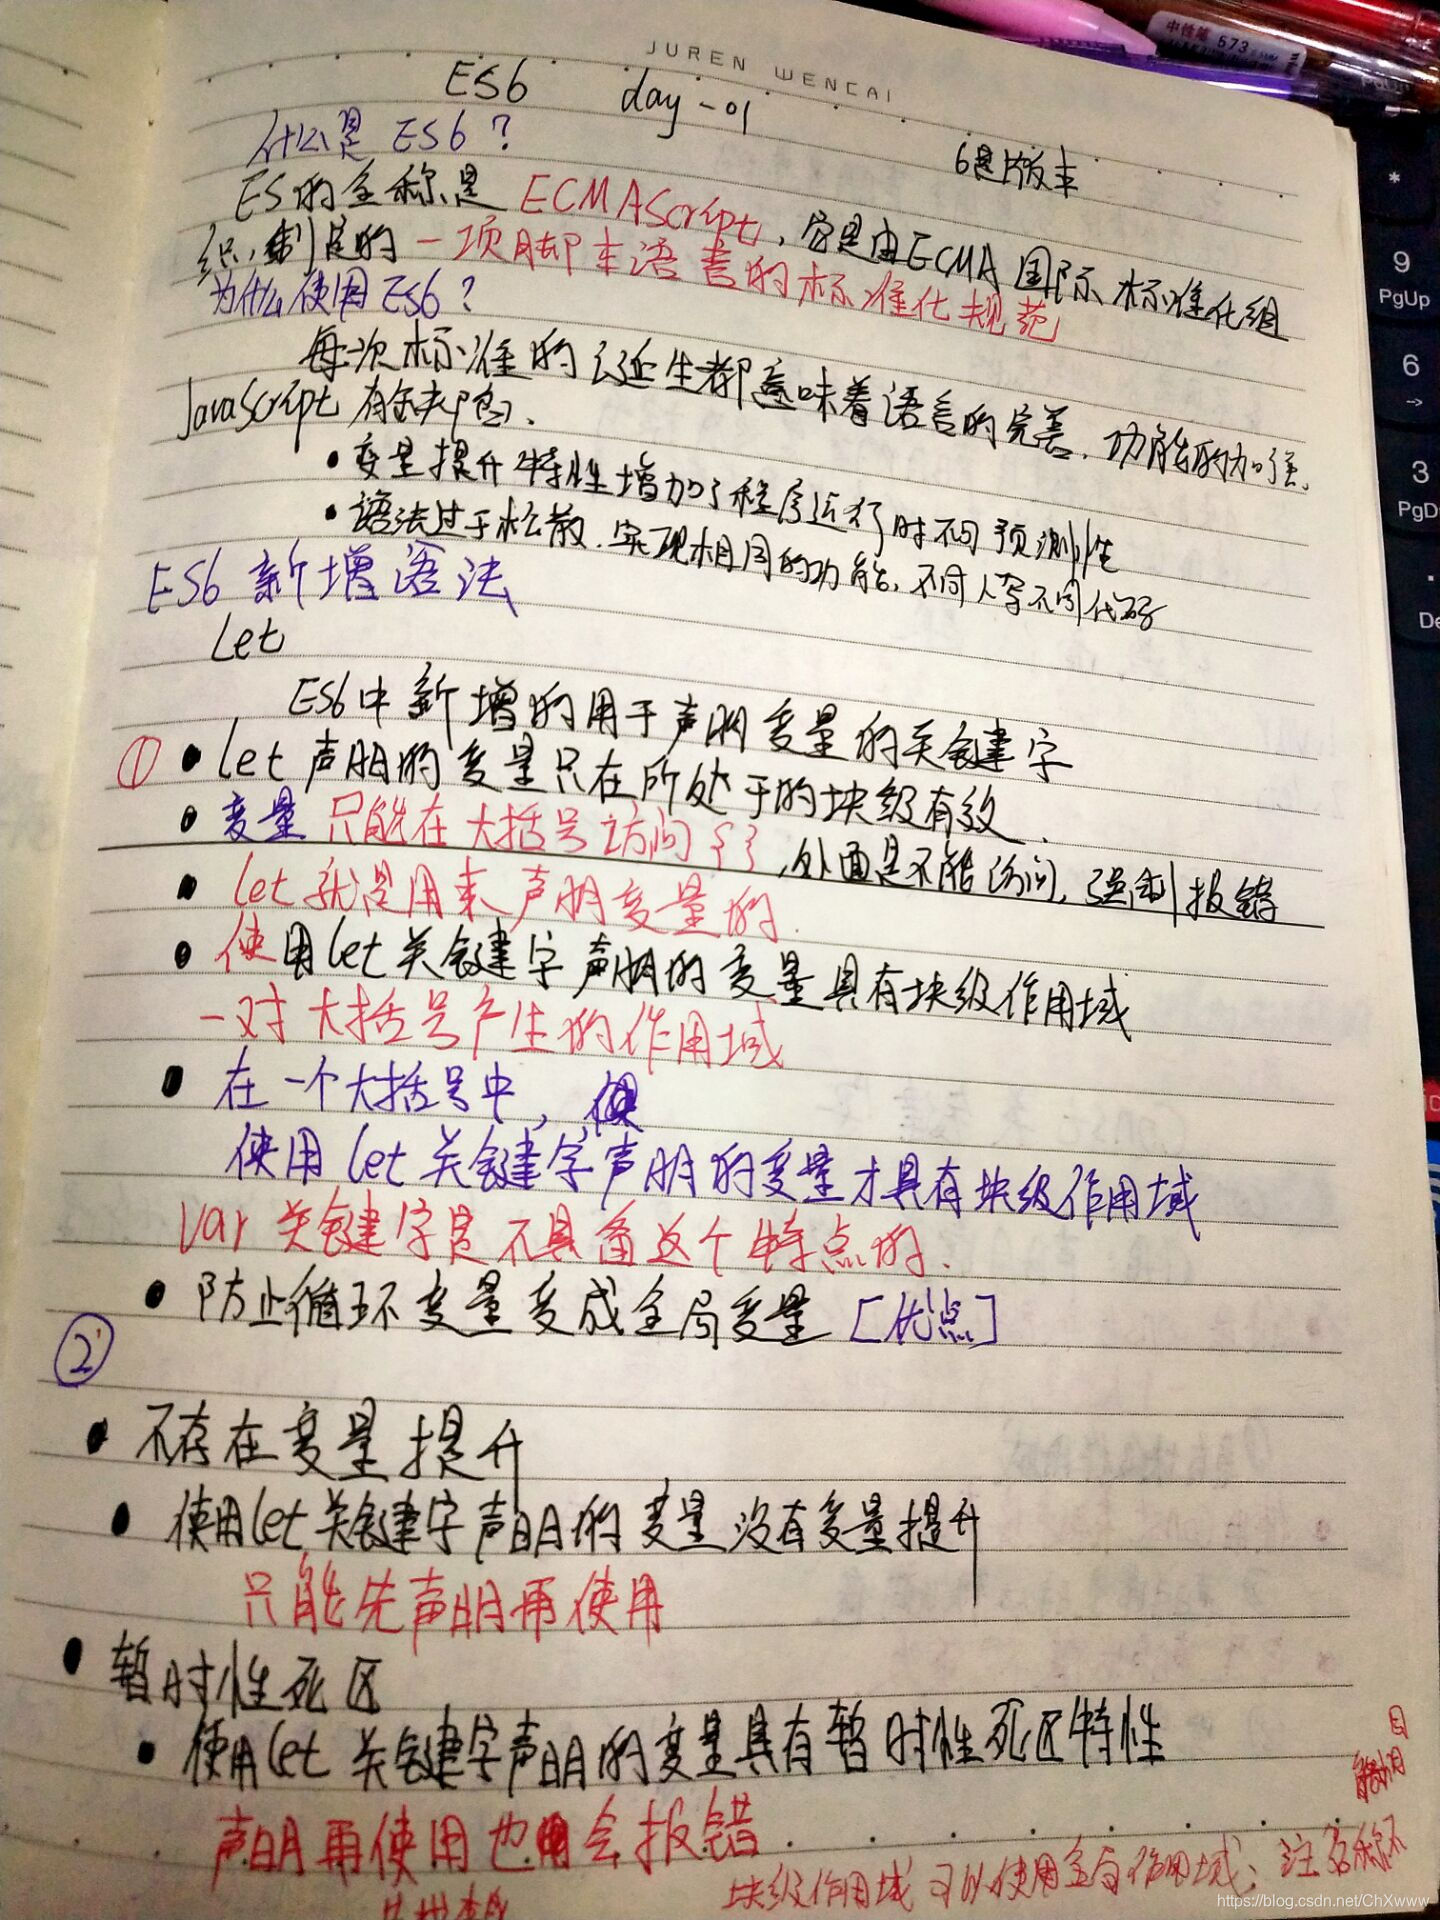 JUREN WENCAI
中性笔 673
ES6 day-01
什么是 ES6？
6是版本
ES的全称是 ECMAScript，它是由ECMA国际标准化组
织，制定的一项脚本语言的标准化规范
为什么使用ES6？
每次标准的诞生都意味着语言的完善，功能的加强。
JavaScript 有缺陷。
变量提升特性增加了程序运行时不可预测性
语法过于松散，实现相同的功能，不同人写不同代码
ES6 新增语法
let
ES6中新增的用于声明变量的关键字
① let 声明的变量只在所处于的块级有效
变量 只能在大括号访问 { }，外面是不能访问，强制报错
let 就是用来声明变量的.
使用let关键字声明的变量具有块级作用域
一对大括号产生的作用域
在一个大括号中，
使用 let 关键字声明的变量才具有块级作用域
var 关键字是不具备这个特点的.
防止循环变量变成全局变量 [优点]
②
不存在变量提升
使用let关键字声明的变量没有变量提升
只能先声明再使用
暂时性死区
使用let关键字声明的变量具有暂时性死区特性
声明再使用也会报错
块级作用域可以使用全局作用域；注名称不
能相同
* 
9
PgUp
6
→
3
https://blog.csdn.net/ChXwww